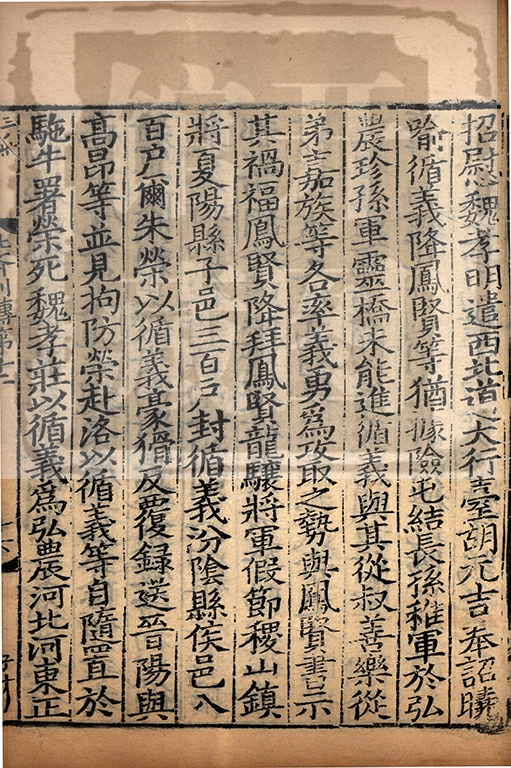 招慰魏孝明遣西北道大行臺胡元吉奉詔曉
喻循義降鳳賢等猶據險屯結長孫稚軍於弘
農珍孫軍靈橋未能進循義與其從叔善樂從
弟嘉族等各率義勇為攻取之勢與鳳賢書示
其禍福鳳賢降拜鳳賢龍驤將軍假節稷山鎮
將夏陽縣子邑三百戶封循義汾陰縣侯邑八
百戶爾朱榮以循義豪猾反覆録送晉陽與
高昂等並見拘防榮赴洛以循義等自隨置於
駞牛署榮死魏孝莊以循義為弘農河北河東正